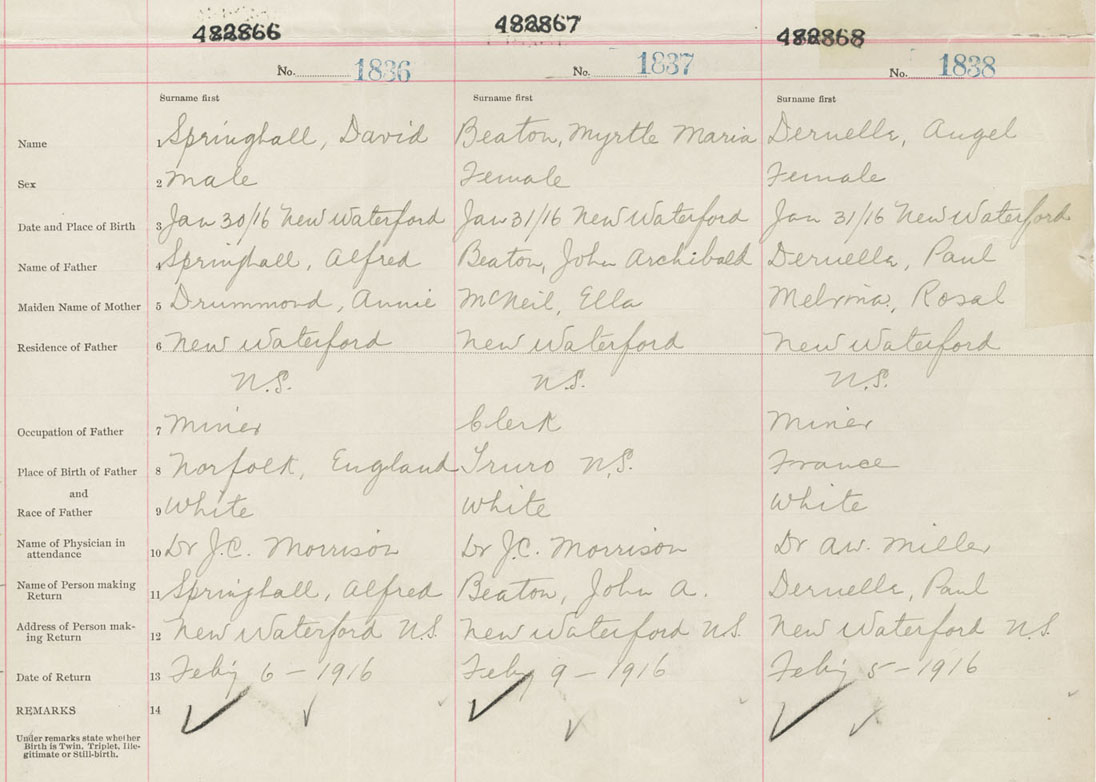 482866 482867 482868
No. 1836 No. 1837 No. 1838
Surname first Surname first Surname first
Name 1 Springhall, David Beaton, Myrtle Maria Deruelle, Angel
Sex 2 Male Female Female
Date and Place of Birth 3 Jan 30/16 New Waterford Jan 31/16 New Waterford Jan 31/16 New Waterford
Name of Father 4 Springhall, Alfred Beaton, John Archibald Deruelle, Paul
Maiden Name of Mother 5 Drummond, Annie McNeil, Ella Melvina, Rosal
Residence of Father 6 New Waterford New Waterford New Waterford
N.S. N.S. N.S.
Occupation of Father 7 Miner Clerk Miner
Place of Birth of Father 8 Norfolk, England Truro N.S. France
and
Race of Father 9 White White White
Name of Physician in
attendance 10 Dr J.C. Morrison Dr J.C. Morrison Dr A.W. Miller
Name of Person making
Return 11 Springhall, Alfred Beaton, John A. Deruelle, Paul
Address of Person mak-
ing Return 12 New Waterford N.S. New Waterford N.S. New Waterford N.S.
Date of Return 13 Feby 6 - 1916 Feby 9 - 1916 Feby 5 - 1916
REMARKS 14
Under remarks state whether
Birth is Twin, Triplet, Ille-
gitimate or Still-birth.